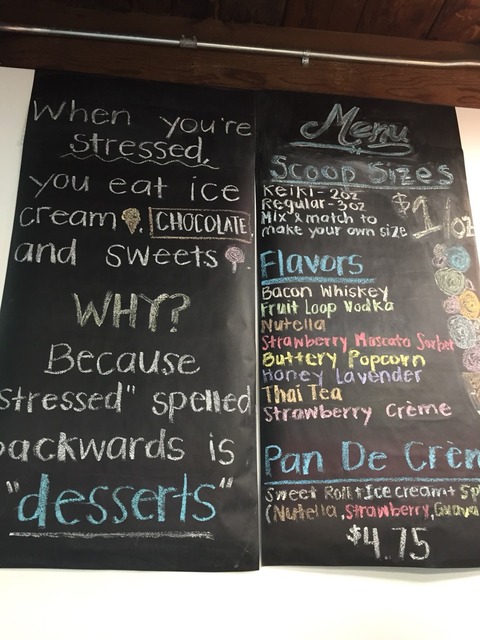 When you're
stressed,
you eat ice
cream, CHOCOLATE,
and sweets
WHY?
Because
stressed" spelled
backwards is
"desserts"
Menu
Scoop Sizes
Keiki - 2oz
Regular - 3oz
Mix & match to
make your own size
$1/oz
Flavors
Bacon Whiskey
Fruit Loop Vodka
Nutella
Strawberry Moscato Sorbet
Buttery Popcorn
Honey Lavender
Thai Tea
Strawberry Crème
Pan De Crèm
Sweet Roll + Ice cream + Sp
(Nutella, Strawberry, Guava
$4.75